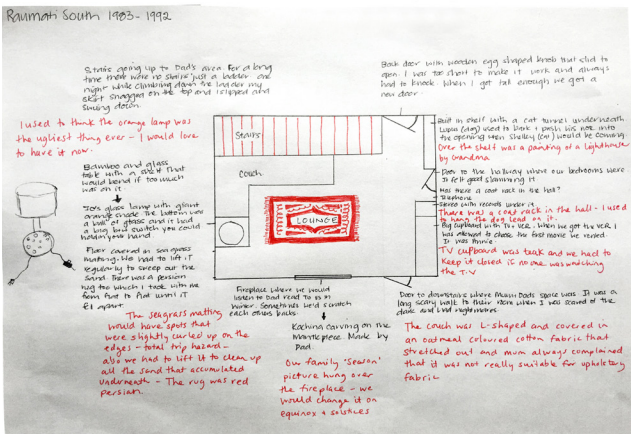 Raumati South 1983-1992
Stairs going up to Dad's area. For a long
time there were no stairs just a ladder one
night while climbing down the ladder my
skirt snagged on the top and I slipped and
swung down.
Back door with wooden egg shaped knob that slid to
open. I was too short to make it work and always
had to knock. When I got tall enough we got a
new door.
I used to think the orange lamp was
the ugliest thing ever - I would love
to have it now.
Bamboo and glass
table with a shelf that
would bend if too much
was on it
70s glass lamp with giant
orange shade. The bottom was
a ball of glass and it had
a big switch you could
hold in your hand
Floor covered in sea grass
matting. We had to lift it
regularly to sweep out the
sand. There was a persian
rug too which I took with me
from flat to flat until it
fell apart.
The seagrass matting
would have spots that
were slightly curled up on the
edges - total trip hazard -
also we had to lift it to clean up
all the sand that accumulated
underneath - The rug was red
persian.
Stairs
Couch
LOUNGE
Fireplace where we would
listen to Dad read to us in
winter. Sometimes we'd scratch
each others backs.
Kachina carving on the
mantlepiece. Made by
Dad.
Our family 'season'
picture hung over
the fireplace - we
would change it on
equinox & solstices
Built in shelf with a cat tunnel underneath
(dog) used to bark + push his nose into
the opening when Smalley (cat) would be coming
Over the shelf was a painting of a lighthouse
by Grandma
Door to the hallway where our bedrooms were
It felt good slamming it
Was there a coat rack in the hall?
Telephone
Stereo with records under it
There was a coat rack in the hall - I used
to hang the dog lead on it.
Big cupboard with TV + VCR. When we got the VCR I
was allowed to choose the first movie we rented
It was Annie
TV cupboard was teak and we had to
keep it closed if no one was watching
the T.V
Door to downstairs where Mum + Dads space was. It was a
long scary walk to their room when I was scared of the
dark and had nightmares
The couch was L-shaped and covered in
an oatmeal coloured cotton fabric that
stretched out and mum always complained
that it was not really suitable for upholstery
fabric